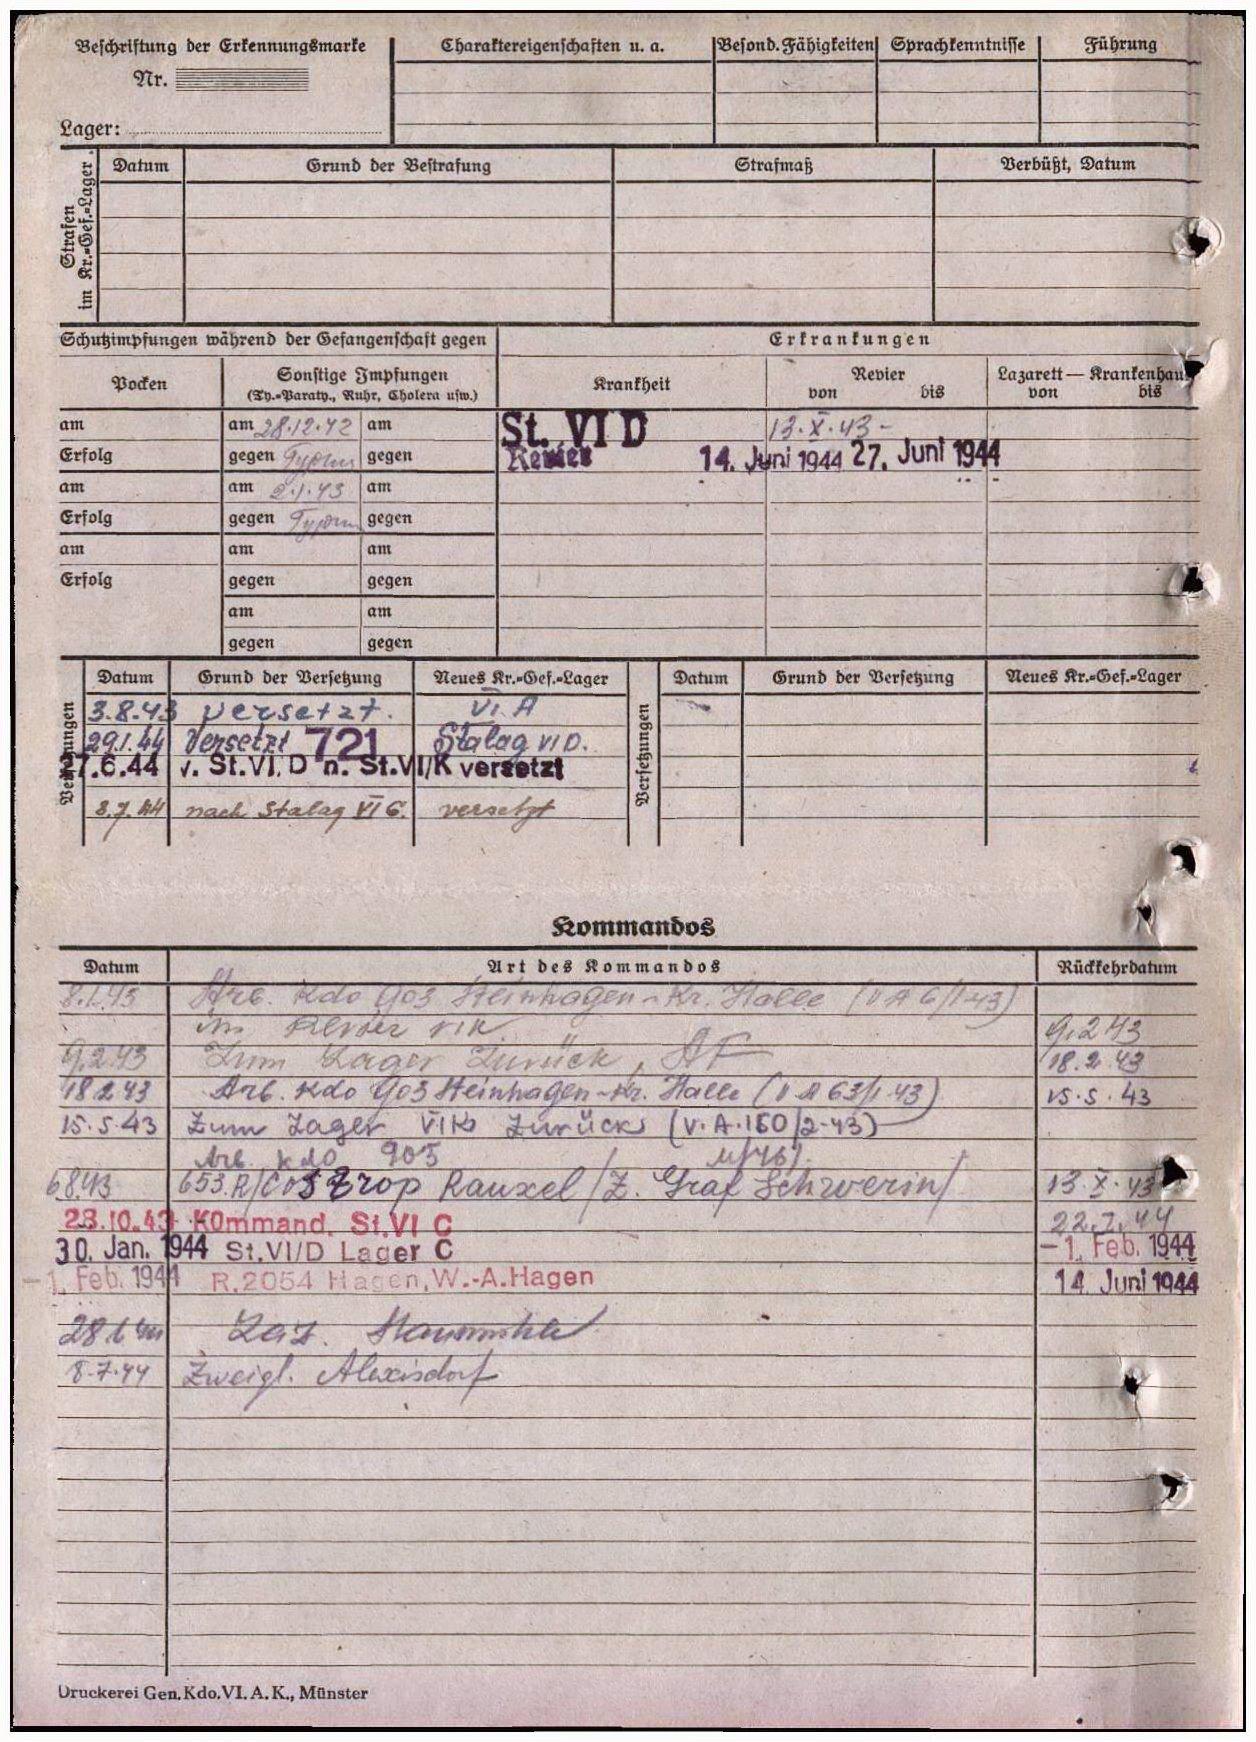 Beschriftung der Erkennungsmarke
Nr.
Lager:
Charaktereigenschaften u. a.
Besond. Fähigkeiten
Sprachkenntnisse
Führung
Strafen
im Kr.=Gef.=Lager.
Datum
Grund der Bestrafung
Strafmaß
Verbüßt, Datum
Schutzimpfungen während der Gefangenschaft gegen
Erkrankungen
Pocken
Sonstige Impfungen
(Ty.=Paraty., Ruhr, Cholera usw.)
Krankheit
Revier
von bis
Lazarett — Krankenhaus
von bis
am am 28.12.42 am St. VI D 13.X.43 -
Erfolg gegen gegen Revier 14. Juni 1944 27. Juni 1944
am am 2.1.43 am
Erfolg gegen gegen
am am am
Erfolg gegen gegen
am am
gegen gegen
Versetzungen
Datum Grund der Versetzung Neues Kr.=Gef.=Lager
3.8.43 versetzt. VI A
29.1.44 versetzt 721 Stalag VI D.
27.6.44 v. St.VI. D n. St.VI/K versetzt
8.7.44 nach Stalag VI G. versetzt
Versetzungen
Datum Grund der Versetzung Neues Kr.=Gef.=Lager
Kommandos
Datum Art des Kommandos Rückkehrdatum
8.1.43 Arb. Kdo 903 Steinhagen - Kr. Halle (V A 6/1-43)
ins Revier VIK 9.2.43
9.2.43 Zum Lager Zurück, 18.2.43
18.2.43 Arb. Kdo 903 Steinhagen - Kr. Halle (V A 63/1-43) 15.5.43
15.5.43 Zum Lager VIK Zurück (V.A.150/2-43)
Arb. Kdo 905
6.8.43 653.R/Castrop Rauxel /Z. Graf Schwerin/ 13.X.43
23.10.43 Kommand. St.VI C 22.1.44
30. Jan. 1944 St.VI/D Lager C -1. Feb. 1944
-1. Feb. 1944 R.2054 Hagen,W.-A.Hagen 14. Juni 1944
28.6.44 Laz. Staumühle
8.7.44 Zweigl. Alexisdorf
Druckerei Gen. Kdo. VI. A. K., Münster